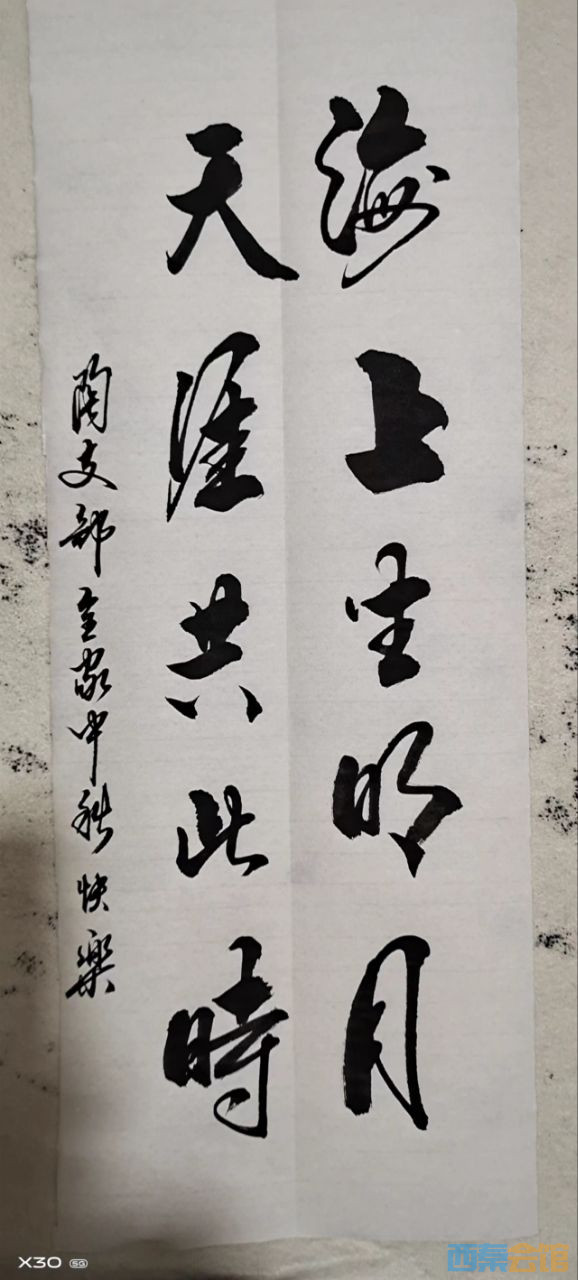 海上生明月
天涯共此時
陶支部全家中秋快樂
X30 5G
西秦会馆